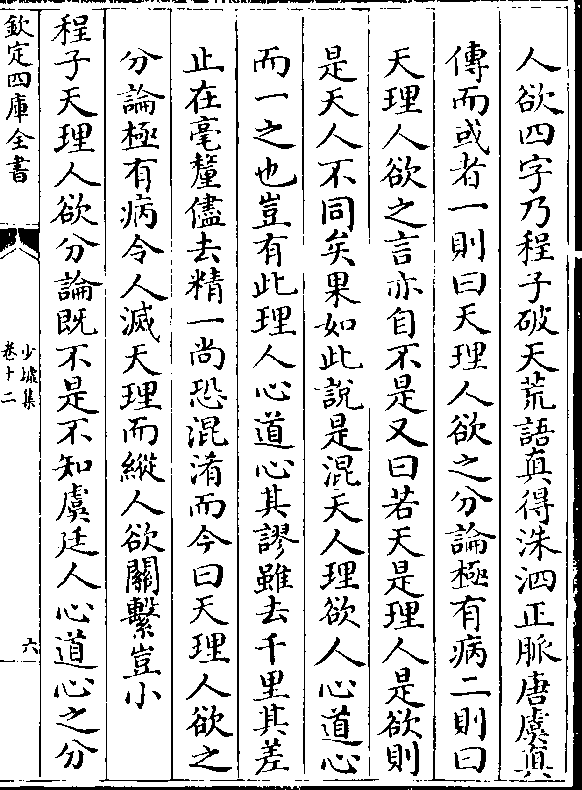 人欲四字乃程子破天荒語真得洙泗正脈唐虞真
傳而或者一則曰天理人欲之分論極有病二則曰
天理人欲之言亦自不是又曰若天是理人是欲則
是天人不同矣果如此說是混天人理欲人心道心
而一之也豈有此理人心道心其謬雖去千里其差
止在毫釐儘去精一尚恐混淆而今曰天理人欲之
分論極有病令人滅天理而縱人欲關繫豈小
程子天理人欲分論既不是不知虞廷人心道心之分
欽定四庫全書
少墟集
卷十二
六